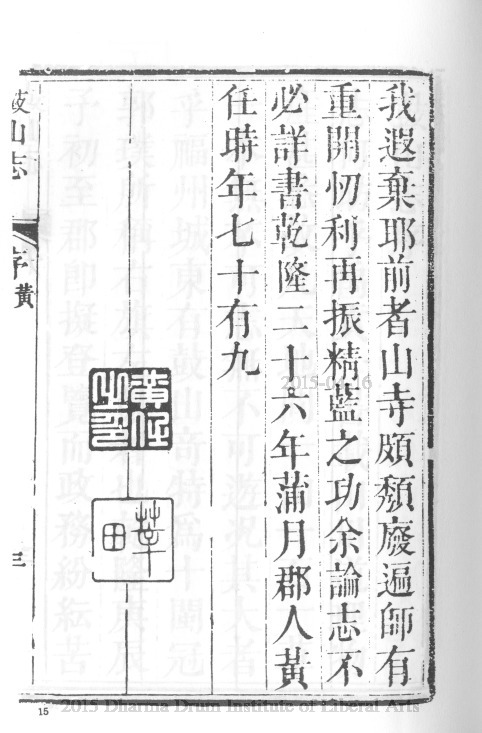 我遐棄耶前者山寺頗頹廢遍師有
重開忉利再振精藍之功余論志不
必詳書乾隆二十六年蒲月郡人黃
任時年七十有九
黃任之印
莘田
鼓山志
序
黃
三
15
2015-04-16
2015 Dharma Drum Institute of Liberal Arts